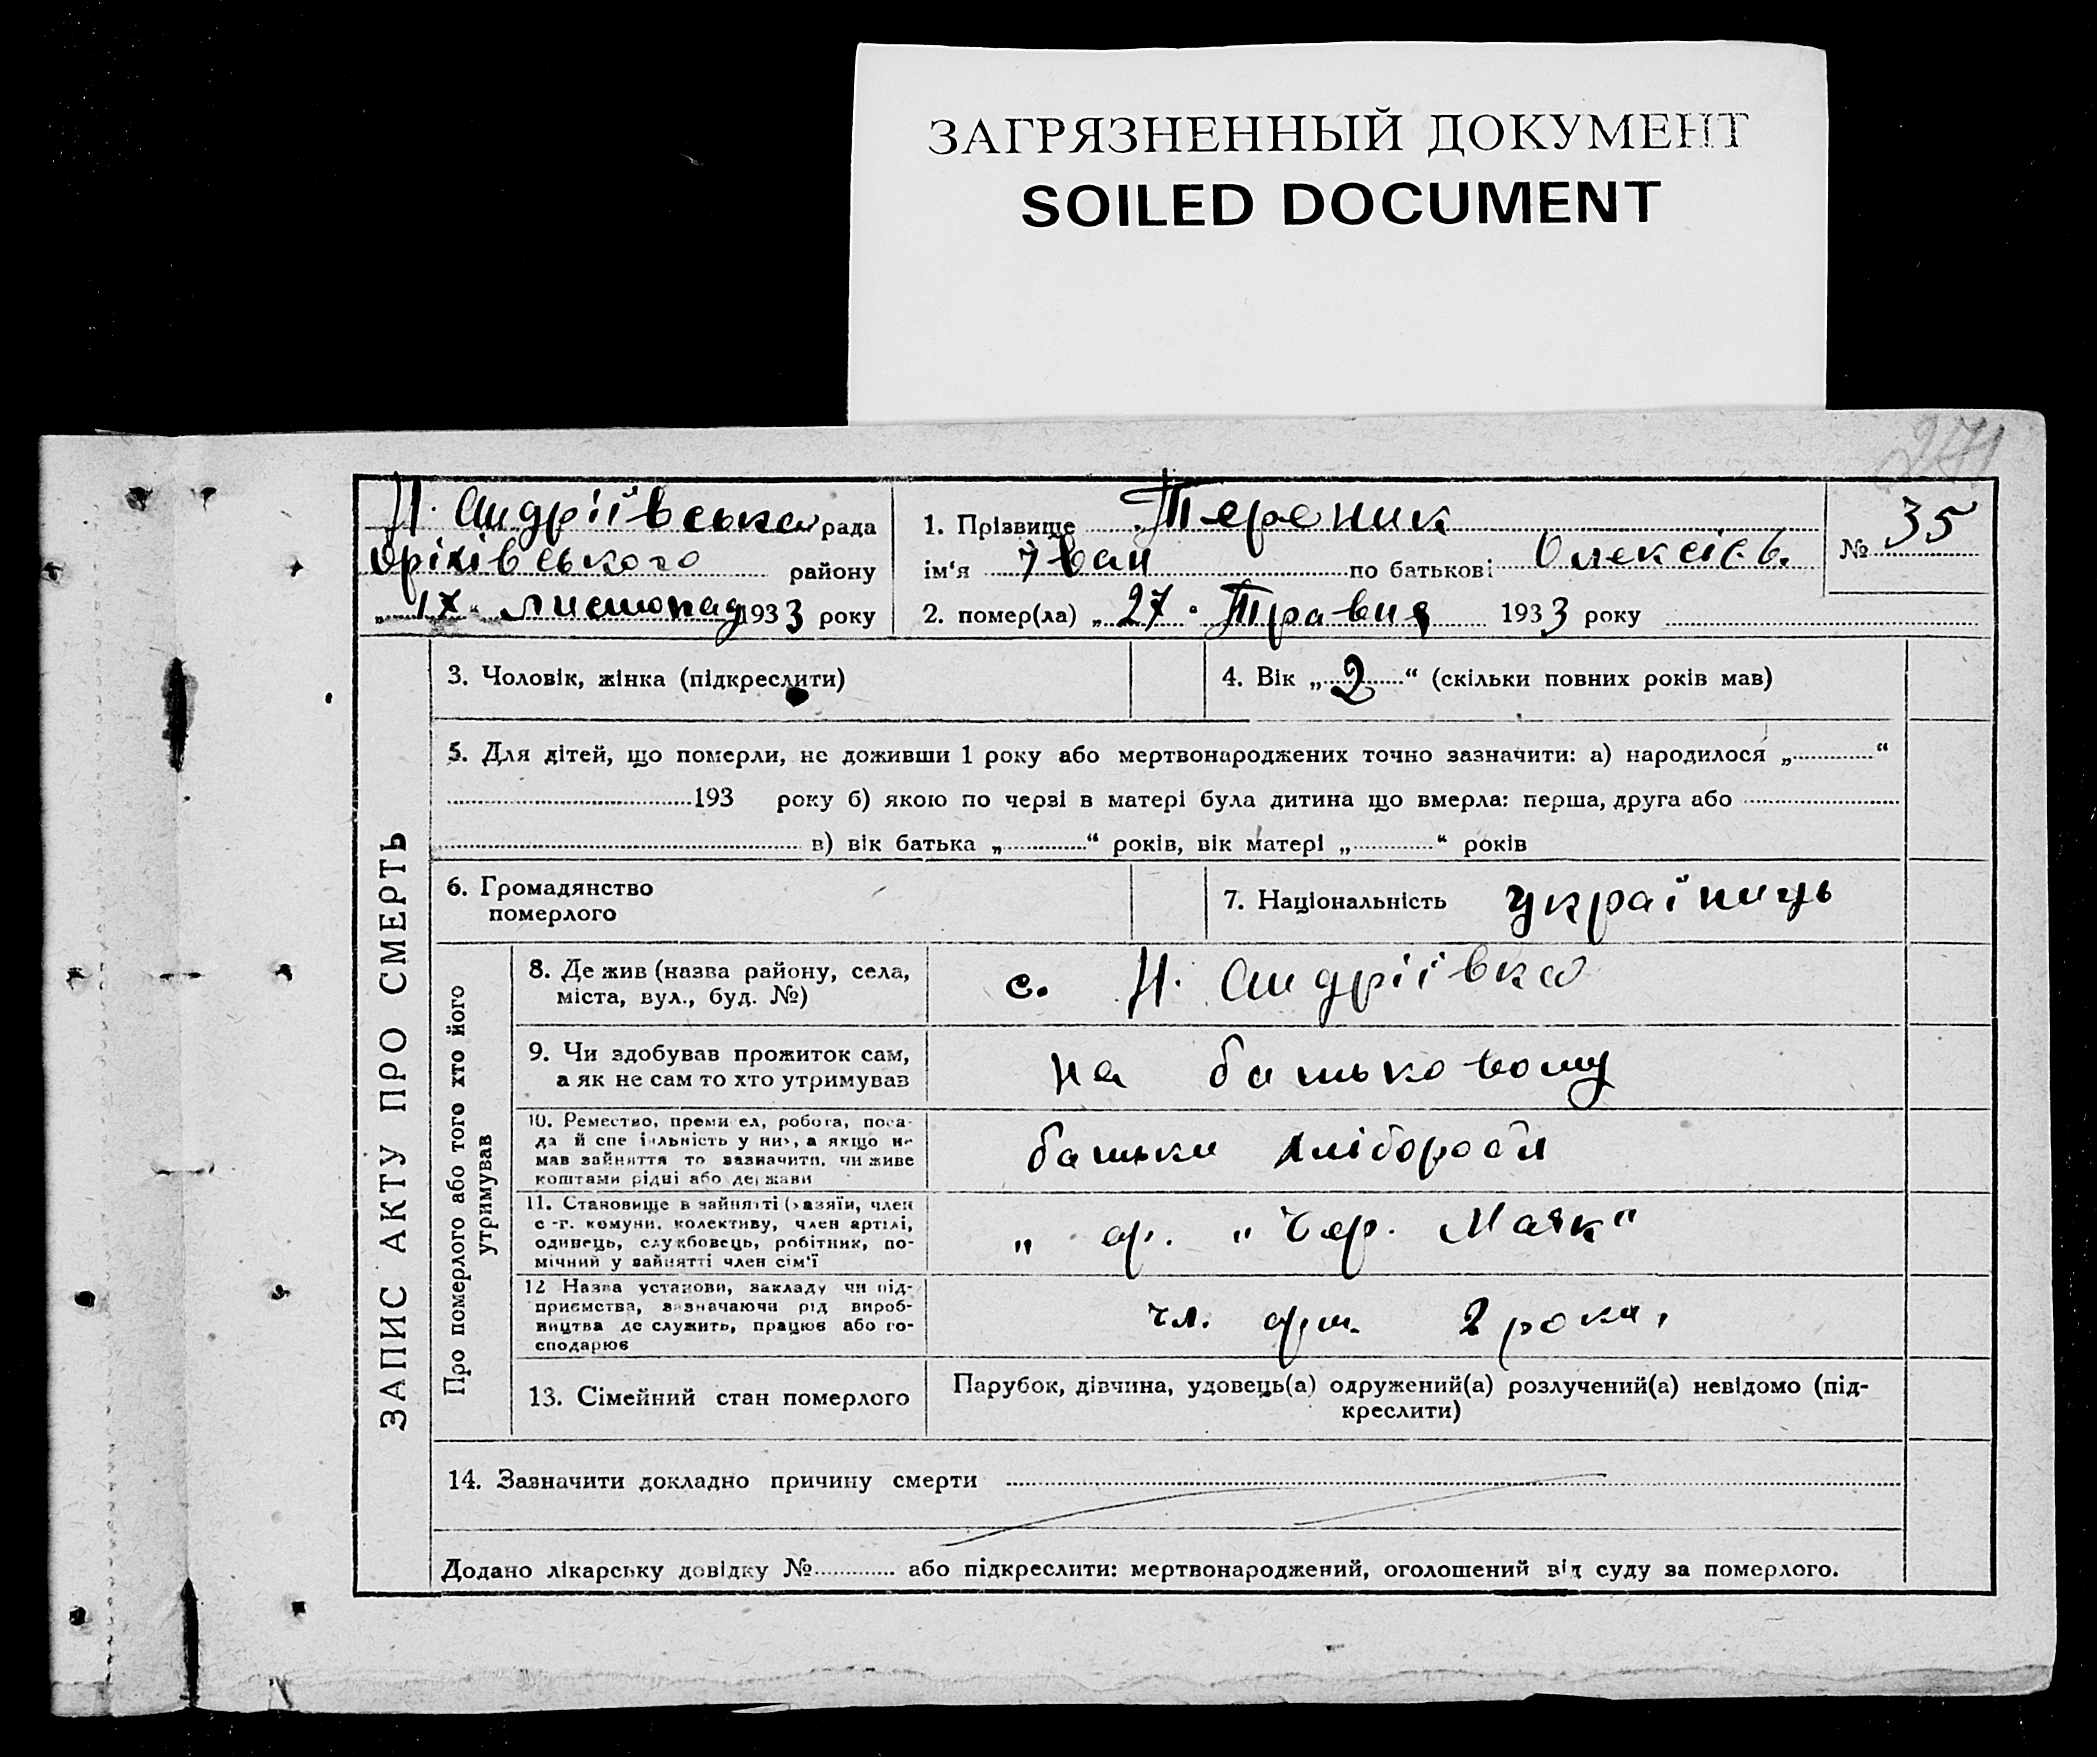 ЗАГРЯЗНЕННЫЙ ДОКУМЕНТ
SOILED DOCUMENT
271
Н. Андріївська рада
Оріхівського району
„17“ листопад 1933 року
1. Прізвище Тереник
ім'я Іван по батькові Олексієв.
2. помер(ла) „27. Травня 1933 року
№ 35
ЗАПИС АКТУ ПРО СМЕРТЬ
3. Чоловік, жінка (підкреслити)
4. Вік „2“ (скільки повних років мав)
5. Для дітей, що померли, не доживши 1 року або мертвонароджених точно зазначити: а) народилося „ “
193 року б) якою по черзі в матері була дитина що вмерла: перша, друга або
в) вік батька „ “ років, вік матері „ “ років
6. Громадянство
померлого
7. Національність україниць
Про померлого або того хто його
утримував
8. Де жив (назва району, села,
міста, вул., буд. №)
с. Н. Андріївка
9. Чи здобував прожиток сам,
а як не сам то хто утримував
на батьковому
10. Ремество, преми ел, робота, поса-
да й спе іяльність у них, а якщо не
мав зайняття то зазначити, чи живе
коштами рідні або держави
батьки хлібороби
11. Становище в зайнятті (хазяїн, член
с.-г. комуни, колективу, член артілі,
одинець, службовець, робітник, по-
мічний у зайнятті член сім'ї
„ ар. „Чер. Маяк“
12 Назва установи, закладу чи під-
приємства, зазначаючи рід вироб-
ництва де служить, працює або го-
сподарює
чл. арт. 2 роки,
13. Сімейний стан померлого
Парубок, дівчина, удовець(а) одружений(а) розлучений(а) невідомо (під-
креслити)
14. Зазначити докладно причину смерти
Додано лікарську довідку № або підкреслити: мертвонароджений, оголошений від суду за померлого.